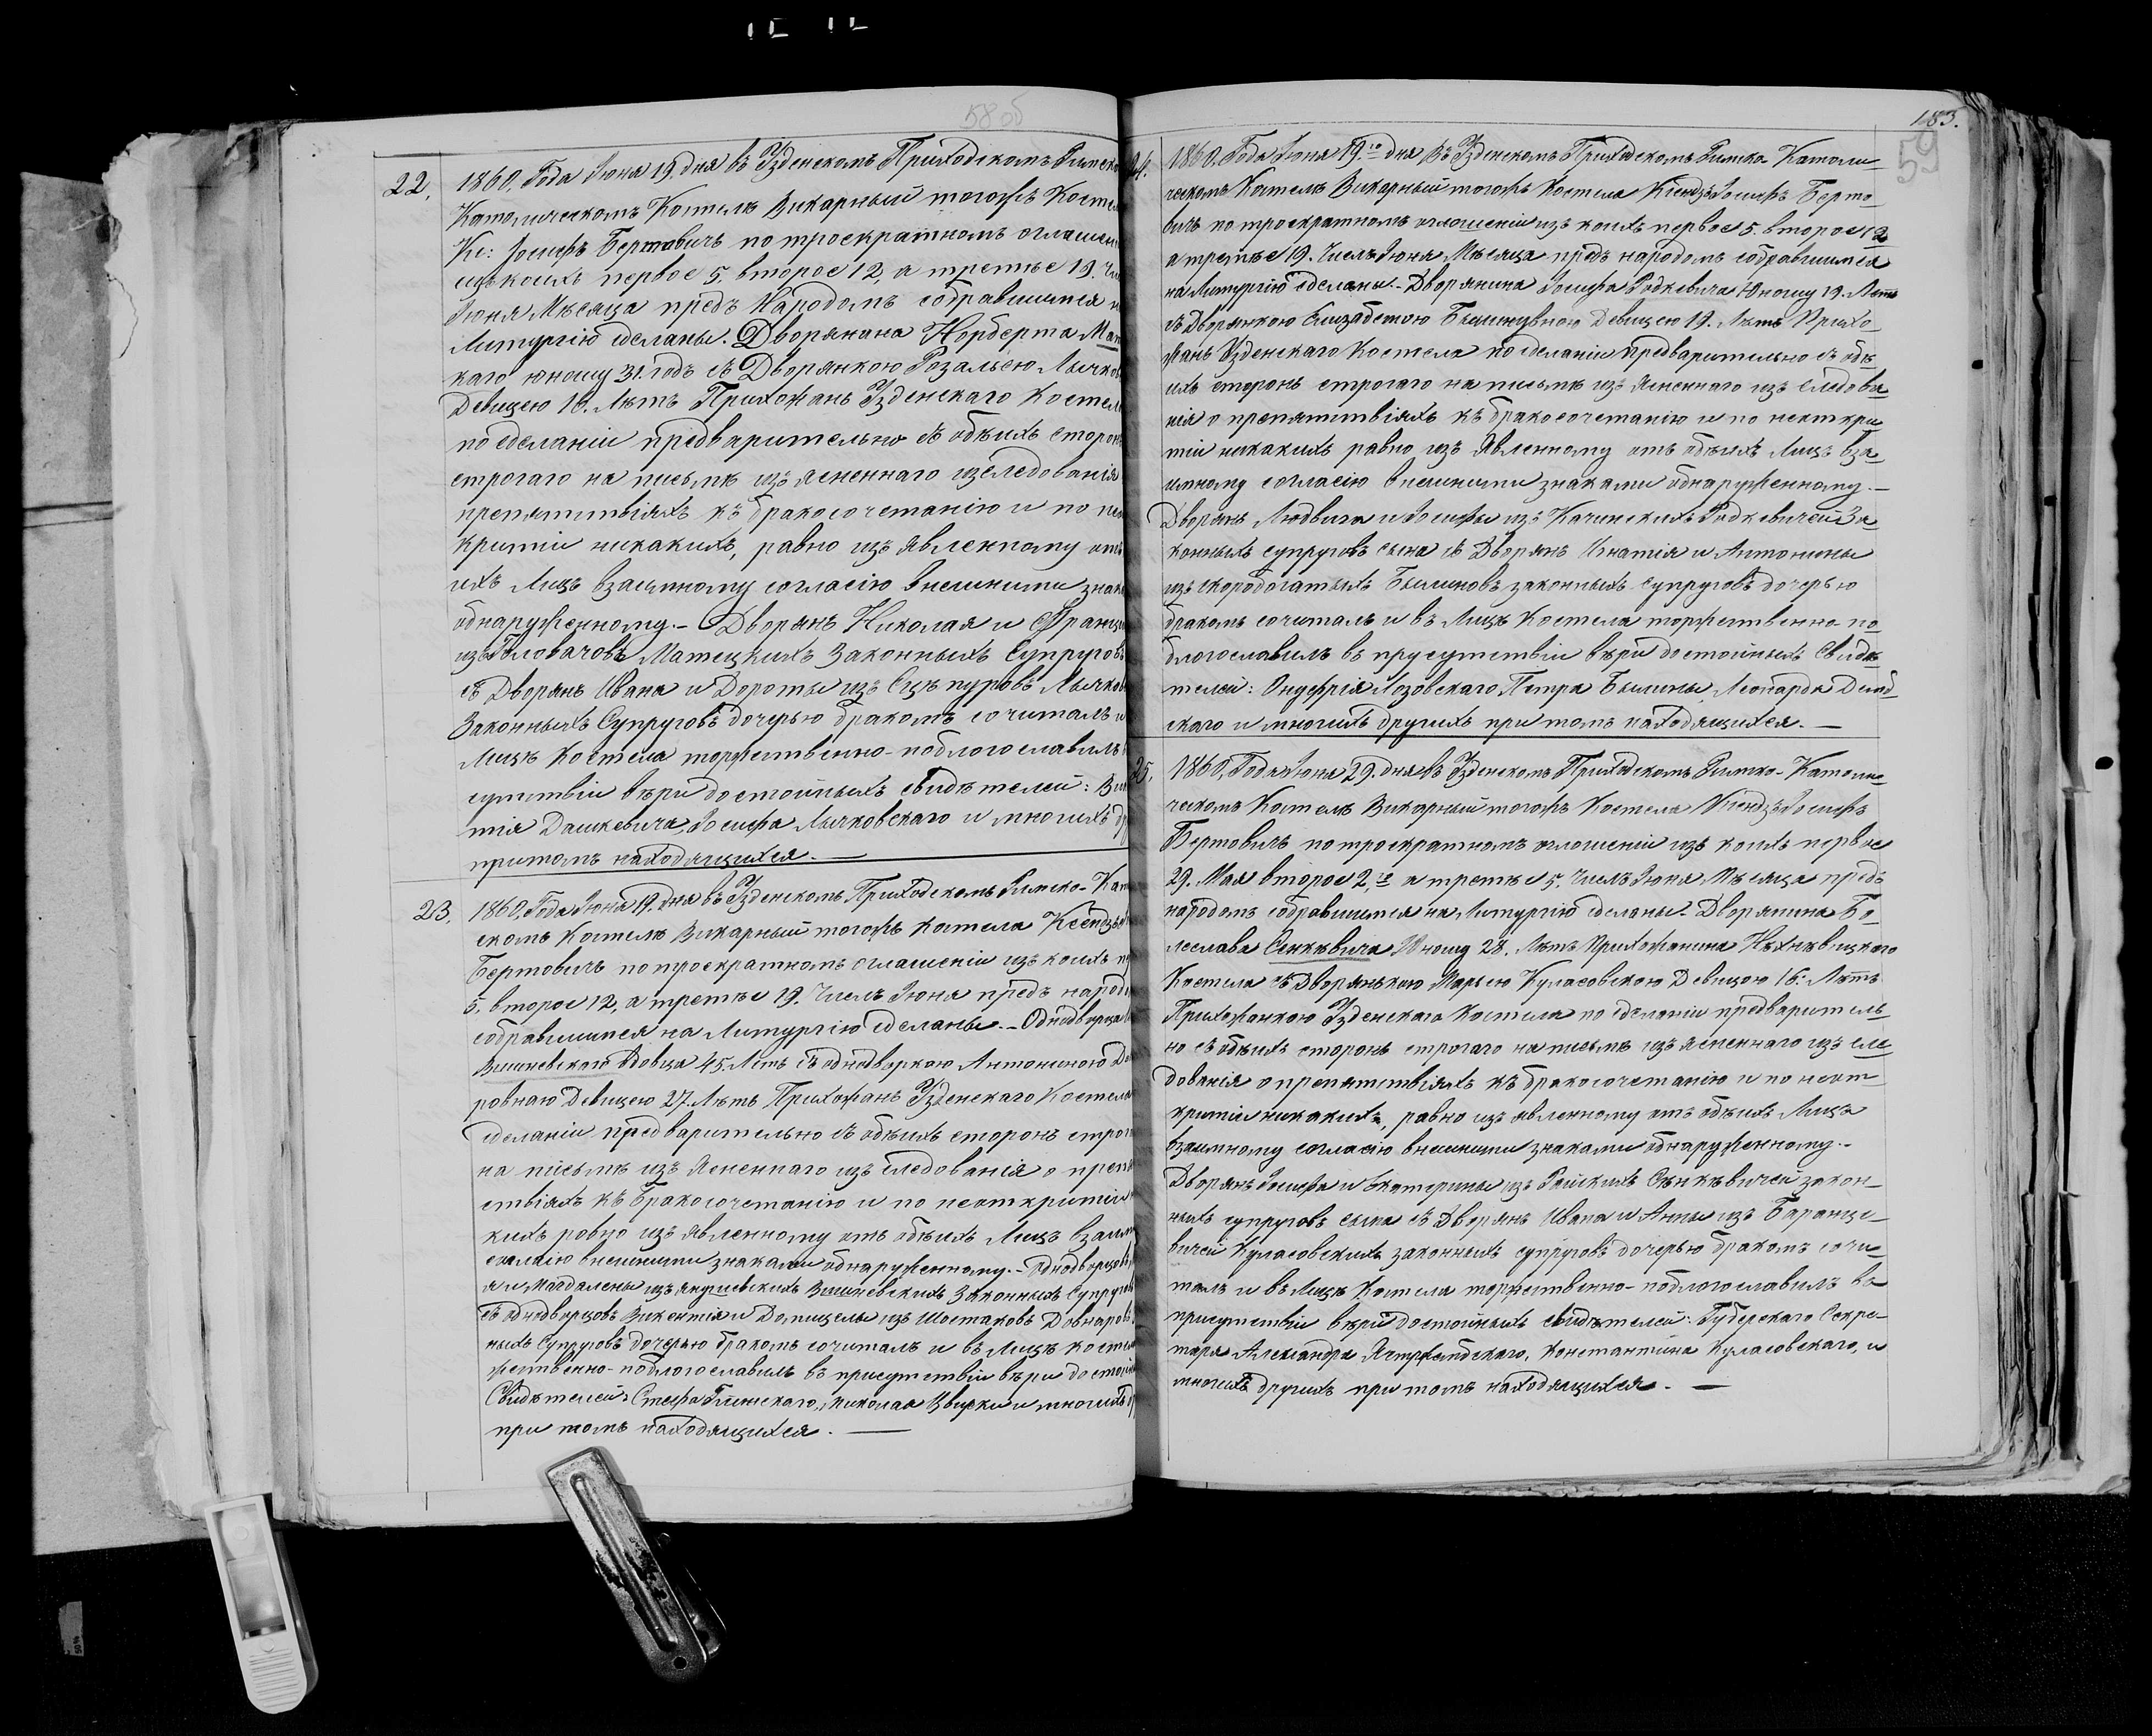 58 об
22. 1860. Года Іюня 19. дня въ Узденскомъ Приходскомъ Римско
Католическомъ Костелѣ Викарный тогожъ Костел
Кс: Іосифъ Бертовичъ по троекратномъ оглашен
изъ коихъ первое 5. второе 12, а третье 19. Чи
Іюня Мѣсяца предъ Народомъ собравшимся н
Литургію сделаны. Дворянина Норберта Мат
каго юношу 31. годъ съ Дворянкою Розаліею Лычков
Девицею 16. Лѣтъ Прихожанъ Узденскаго Костел
по сделаніи предварительно съ обѣихъ сторонъ
строгаго на письмѣ изъясненнаго изследованія
препятствіяхъ къ бракосочетанію и по нео
критіи никакихъ, равно изъявленному отъ
ихъ Лицъ взаимному согласію внешними знак
обнаруженному. – Дворянъ Николая и Франци
изъ Головачовъ Матецкихъ Законныхъ Супруговъ
съ Дворянъ Ивана и Дороты изъ Сцѣпуровъ Лычков
Законныхъ Супруговъ дочерью бракомъ сочиталъ и
Лицѣ Костела торжественно поблогославилъ
сутствіи вѣри достойныхъ свидѣтелей: Ви
тія Дашкевича, Іосифа Лычковскаго и многихъ др
притомъ находящихся. —
23. 1860. Года Іюня 19. дня въ Узденскомъ Приходскомъ Римско-Кат
скомъ Костелѣ Викарный тогожъ Костела Ксендзъ
Бертовичъ по троекратномъ оглашеніи изъ коихъ п
5. второе 12, а третье 19. Числъ Іюня предъ народо
собравшимся на Литургію сделаны. – Однодворца
Вишневского Вдовца 45. Летъ съ однодворкою Антониною До
ровною Девицею 27. Лѣтъ Прихожанъ Узденскаго Костела
сделаніи предварительно съ обѣихъ сторонъ строг
на письмѣ изъясненнаго изъследованія о препя
ствіяхъ къ бракосочетанію и по неоткритіи
кихъ ровно изъявленному отъ обѣихъ Лицъ взаим
согласію внешними знаками обнаруженному. – Однодворцовъ
я и Магдалены изъ Вишневскихъ Законныхъ Супругов
съ однодворцовъ Викентія и Домицелы изъ Шостаковъ Довнаров
ныхъ Супруговъ дочерью бракомъ сочиталъ и въ Лицѣ Косте
жественно-поблогославилъ въ присутствіи вѣри достой
Свидѣтелей: Глинскаго, Николая Цвирки и многихъ
при томъ находящихся. —
183.
59
24. 1860. Года Іюня 19.го дня въ Узденскомъ Приходскомъ Римско Католи-
ческомъ Костелѣ Викарный тогожъ Костела Ксендзъ Іосифъ Берто-
вичъ по троекратномъ оглошеніи изъ коихъ первое 5. второе 12
а третье 19. Числъ Іюня Мѣсяца предъ народомъ собравшимся
на Литургію сделаны. – Дворянина Іосифа Родкевича Юношу 19. Летъ
съ Дворянкою Елизабетою Былинувною Девицею 19. Лѣтъ Прихо-
жанъ Узденскаго Костела по сделаніи предварительно съ обѣ-
ихъ сторонъ строгаго на письмѣ изъясненнаго изъследова-
нія о препятствіяхъ къ бракосочетанію и по неоткри-
тіи никакихъ равно изъявленному отъ обѣихъ Лицъ вза-
имному согласію внешними знаками обнаруженному. –
Дворянъ Людвига и Іосифы изъ Качинскихъ Родкевичей За-
конныхъ супруговъ сына съ Дворянъ Игнатія и Антонины
изъ Скоробогатыхъ Былиновъ законныхъ супруговъ дочерью
бракомъ сочиталъ и въ Лицѣ Костела торжественно по-
блогославилъ въ присутствіи вѣри достойныхъ Свидѣ-
телей: Онуфрія Лозовскаго, Петра Былины, Леопарда
скаго и многихъ другихъ при томъ находящихся. —
25. 1860. Года Іюня 29. дня въ Узденскомъ Приходскомъ Римско-Католи-
ческомъ Костелѣ Викарный тогожъ Костела Ксендзъ Іосифъ
Бертовичъ по троекратномъ оглошеніи изъ коихъ первое
29. Мая второе 2.го а третье 5. Числъ Іюня Мѣсяца предъ
народомъ собравшимся на Литургію сделаны. – Дворянина Бо-
леслава Сенкѣвича Юношу 28. Лѣтъ Прихожанина Нѣхнѣвицкаго
Костела съ Дворянкою Марьею Куласовскою Девицою 16. Лѣтъ
Прихожанкою Узденскаго Костела по сделаніи предваритель-
но съ обѣихъ сторонъ строгаго на письмѣ изъясненнаго изъсле-
дованія о препятствіяхъ къ бракосочетанію и по неот-
критіи никакихъ, равно изъявленному отъ обѣихъ Лицъ
взаимному согласію внешними знаками обнаруженному. –
Дворянъ Іосифа и Екатерины изъ Райскихъ Сѣнкѣвичей закон-
ныхъ супруговъ сына съ Дворянъ Ивана и Анны изъ Баранце-
вичей Куласовскихъ законныхъ супруговъ дочерью бракомъ сочи-
талъ и въ Лицѣ Костела торжественно-поблогославилъ въ
присутствіи вѣри достойныхъ свидѣтелей: Губерскаго Секре-
таря Александра Ястржембскаго, Константина Куласовскаго, и
многихъ другихъ при томъ находящихся. —